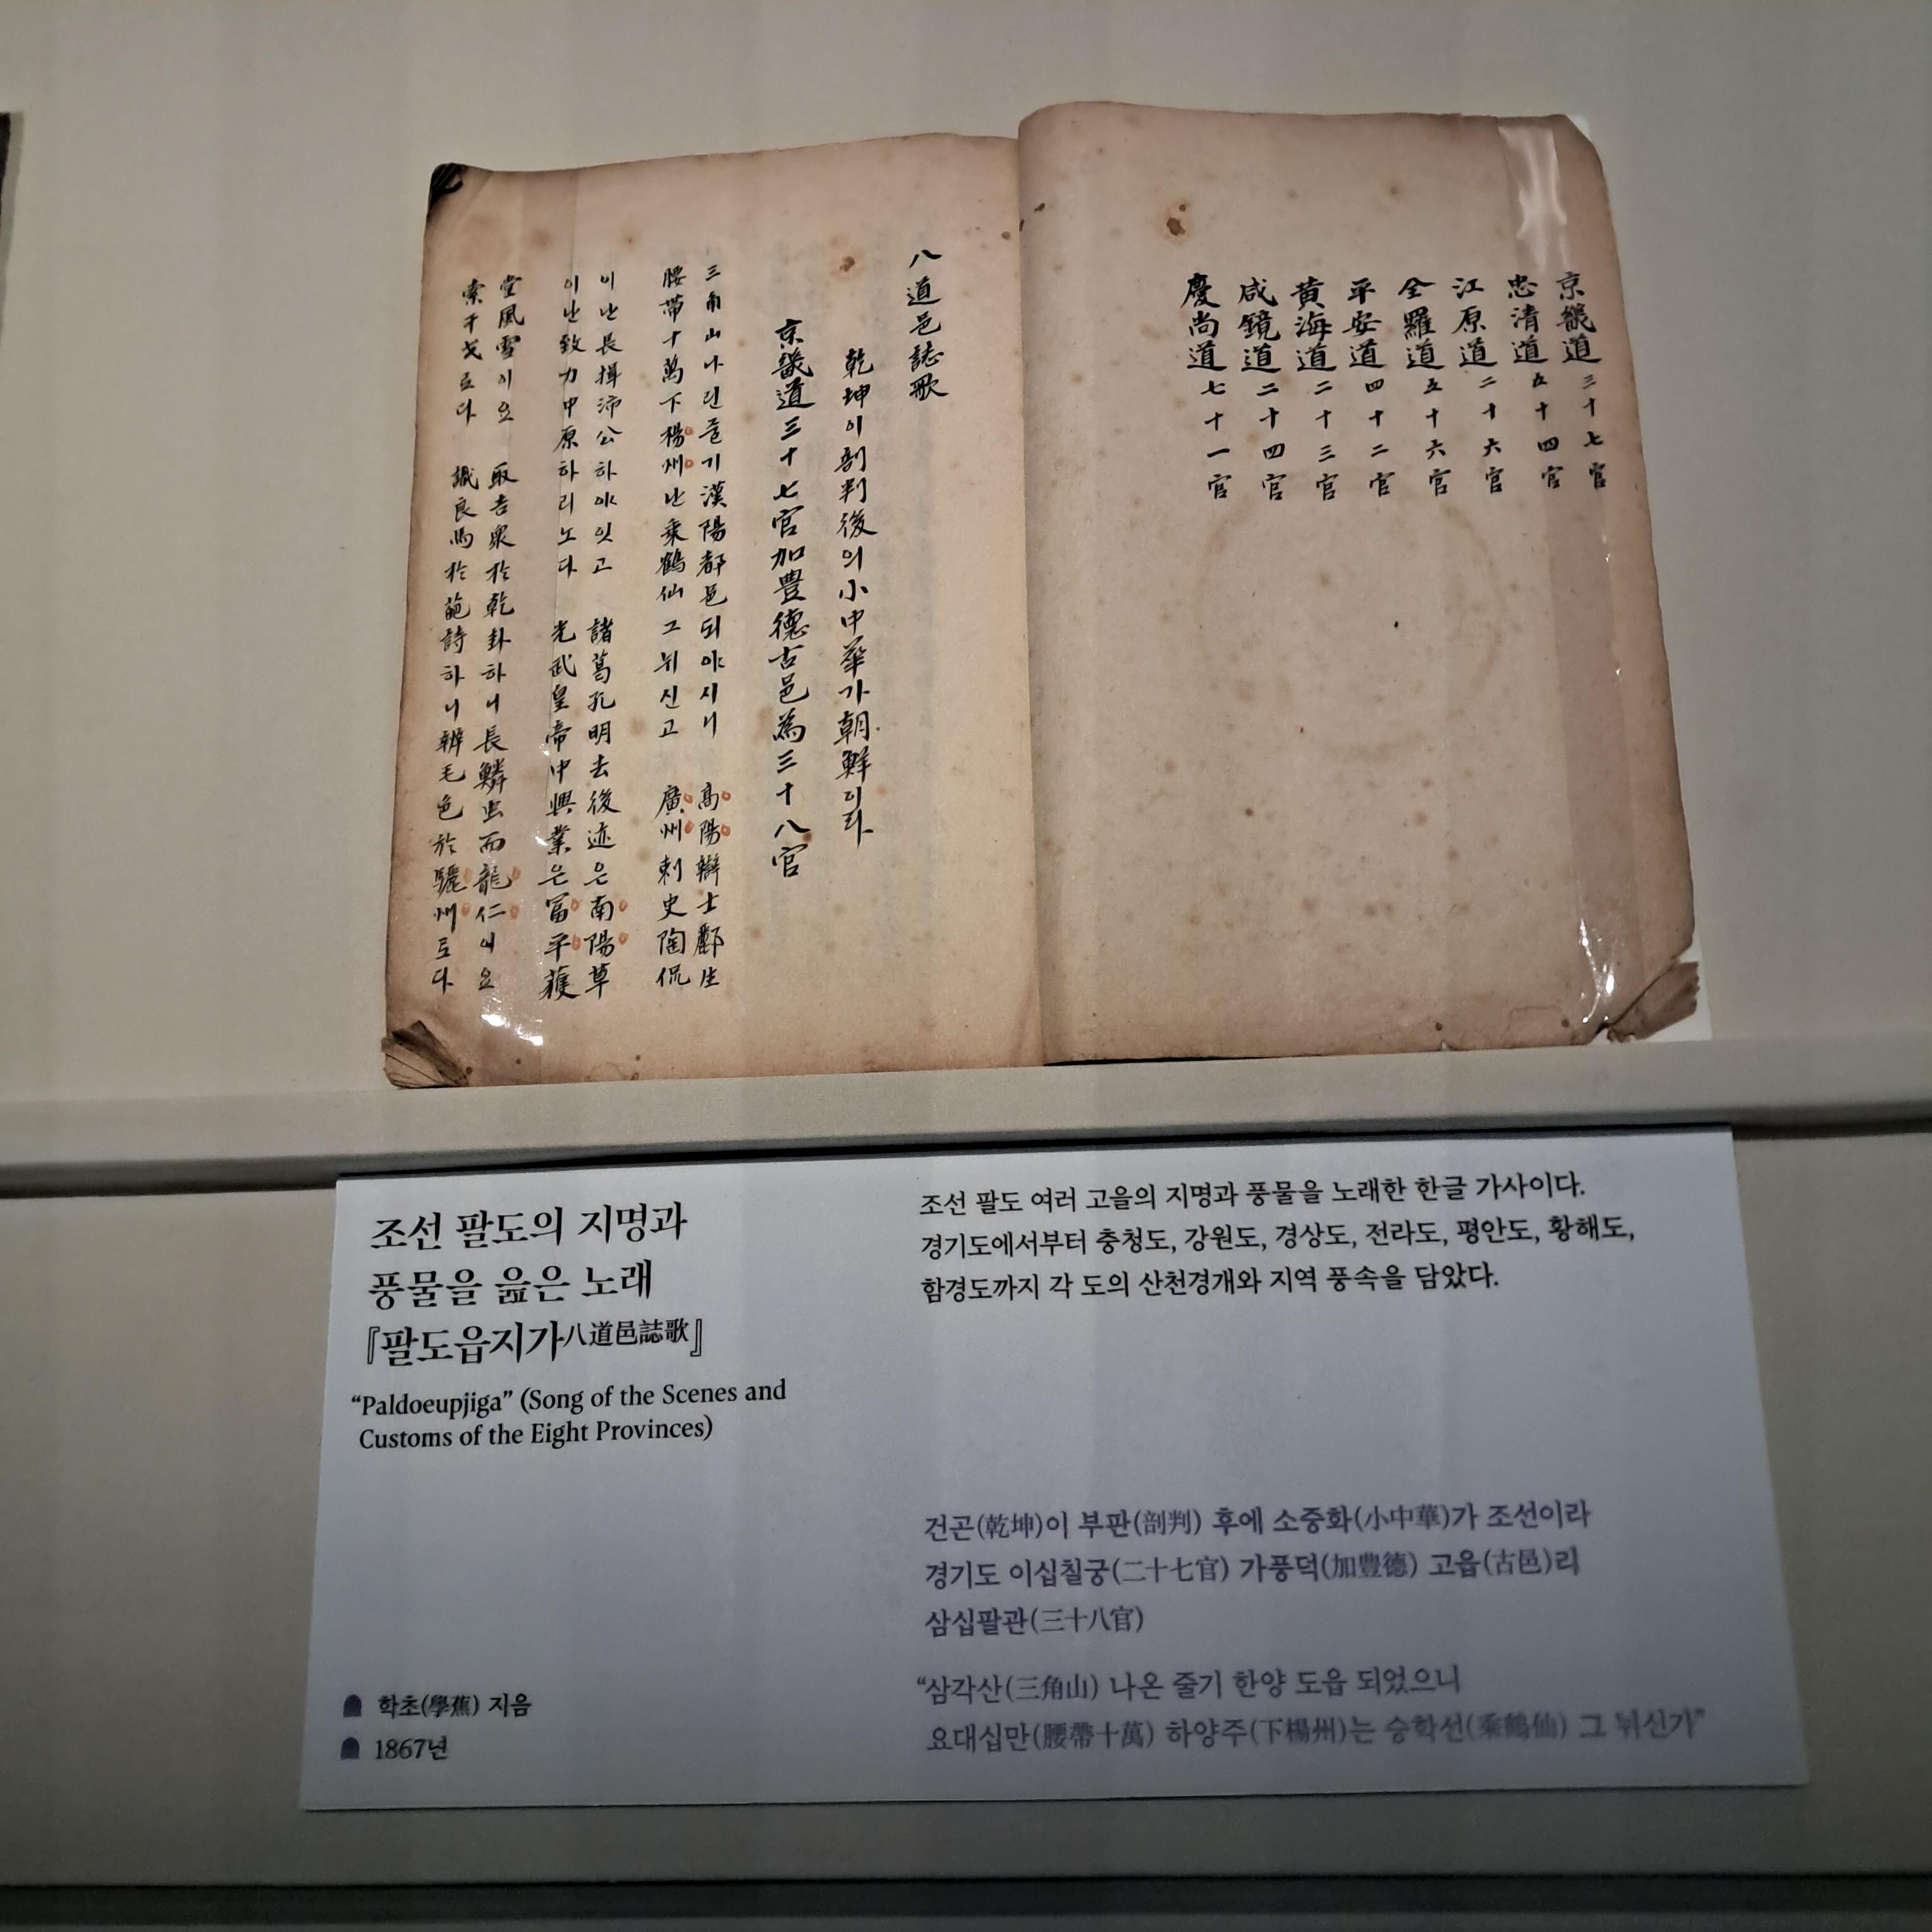 京畿道三十七官
忠清道五十四官
江原道二十六官
全羅道五十六官
平安道四十二官
黄海道二十三官
咸鏡道二十四官
慶尚道七十一官
八道邑誌歌
乾坤이剖判後의小中華가朝鮮이라
京畿道三十七官加豊德古邑為三十八官
三角山나린줄기漢陽都邑되야시니 高陽辯士酈生
腰帶十萬下楊州난乘鶴仙그뉘신고 廣州刺史陶侃
이난長揖沛公하야잇고 諸葛孔明去後迹은南陽草
이난致力中原하리노다 光武皇帝中興業은富平蓷
堂風雪이요 取吉衆於乾卦하니長鱗虫而龍仁이요
索干戈로다 諷良馬於葩詩하니辨毛色於驪州로다
조선 팔도의 지명과
풍물을 읊은 노래
『팔도읍지가八道邑誌歌』
“Paldoeupjiga” (Song of the Scenes and
Customs of the Eight Provinces)
학초(學蕉) 지음
1867년
조선 팔도 여러 고을의 지명과 풍물을 노래한 한글 가사이다.
경기도에서부터 충청도, 강원도, 경상도, 전라도, 평안도, 황해도,
함경도까지 각 도의 산천경개와 지역 풍속을 담았다.
건곤(乾坤)이 부판(剖判) 후에 소중화(小中華)가 조선이라
경기도 이십칠궁(二十七官) 가풍덕(加豊德) 고읍(古邑)리
삼십팔관(三十八官)
“삼각산(三角山) 나온 줄기 한양 도읍 되었으니
요대십만(腰帶十萬) 하양주(下楊州)는 승학선(乘鶴仙) 그 뉘신가”